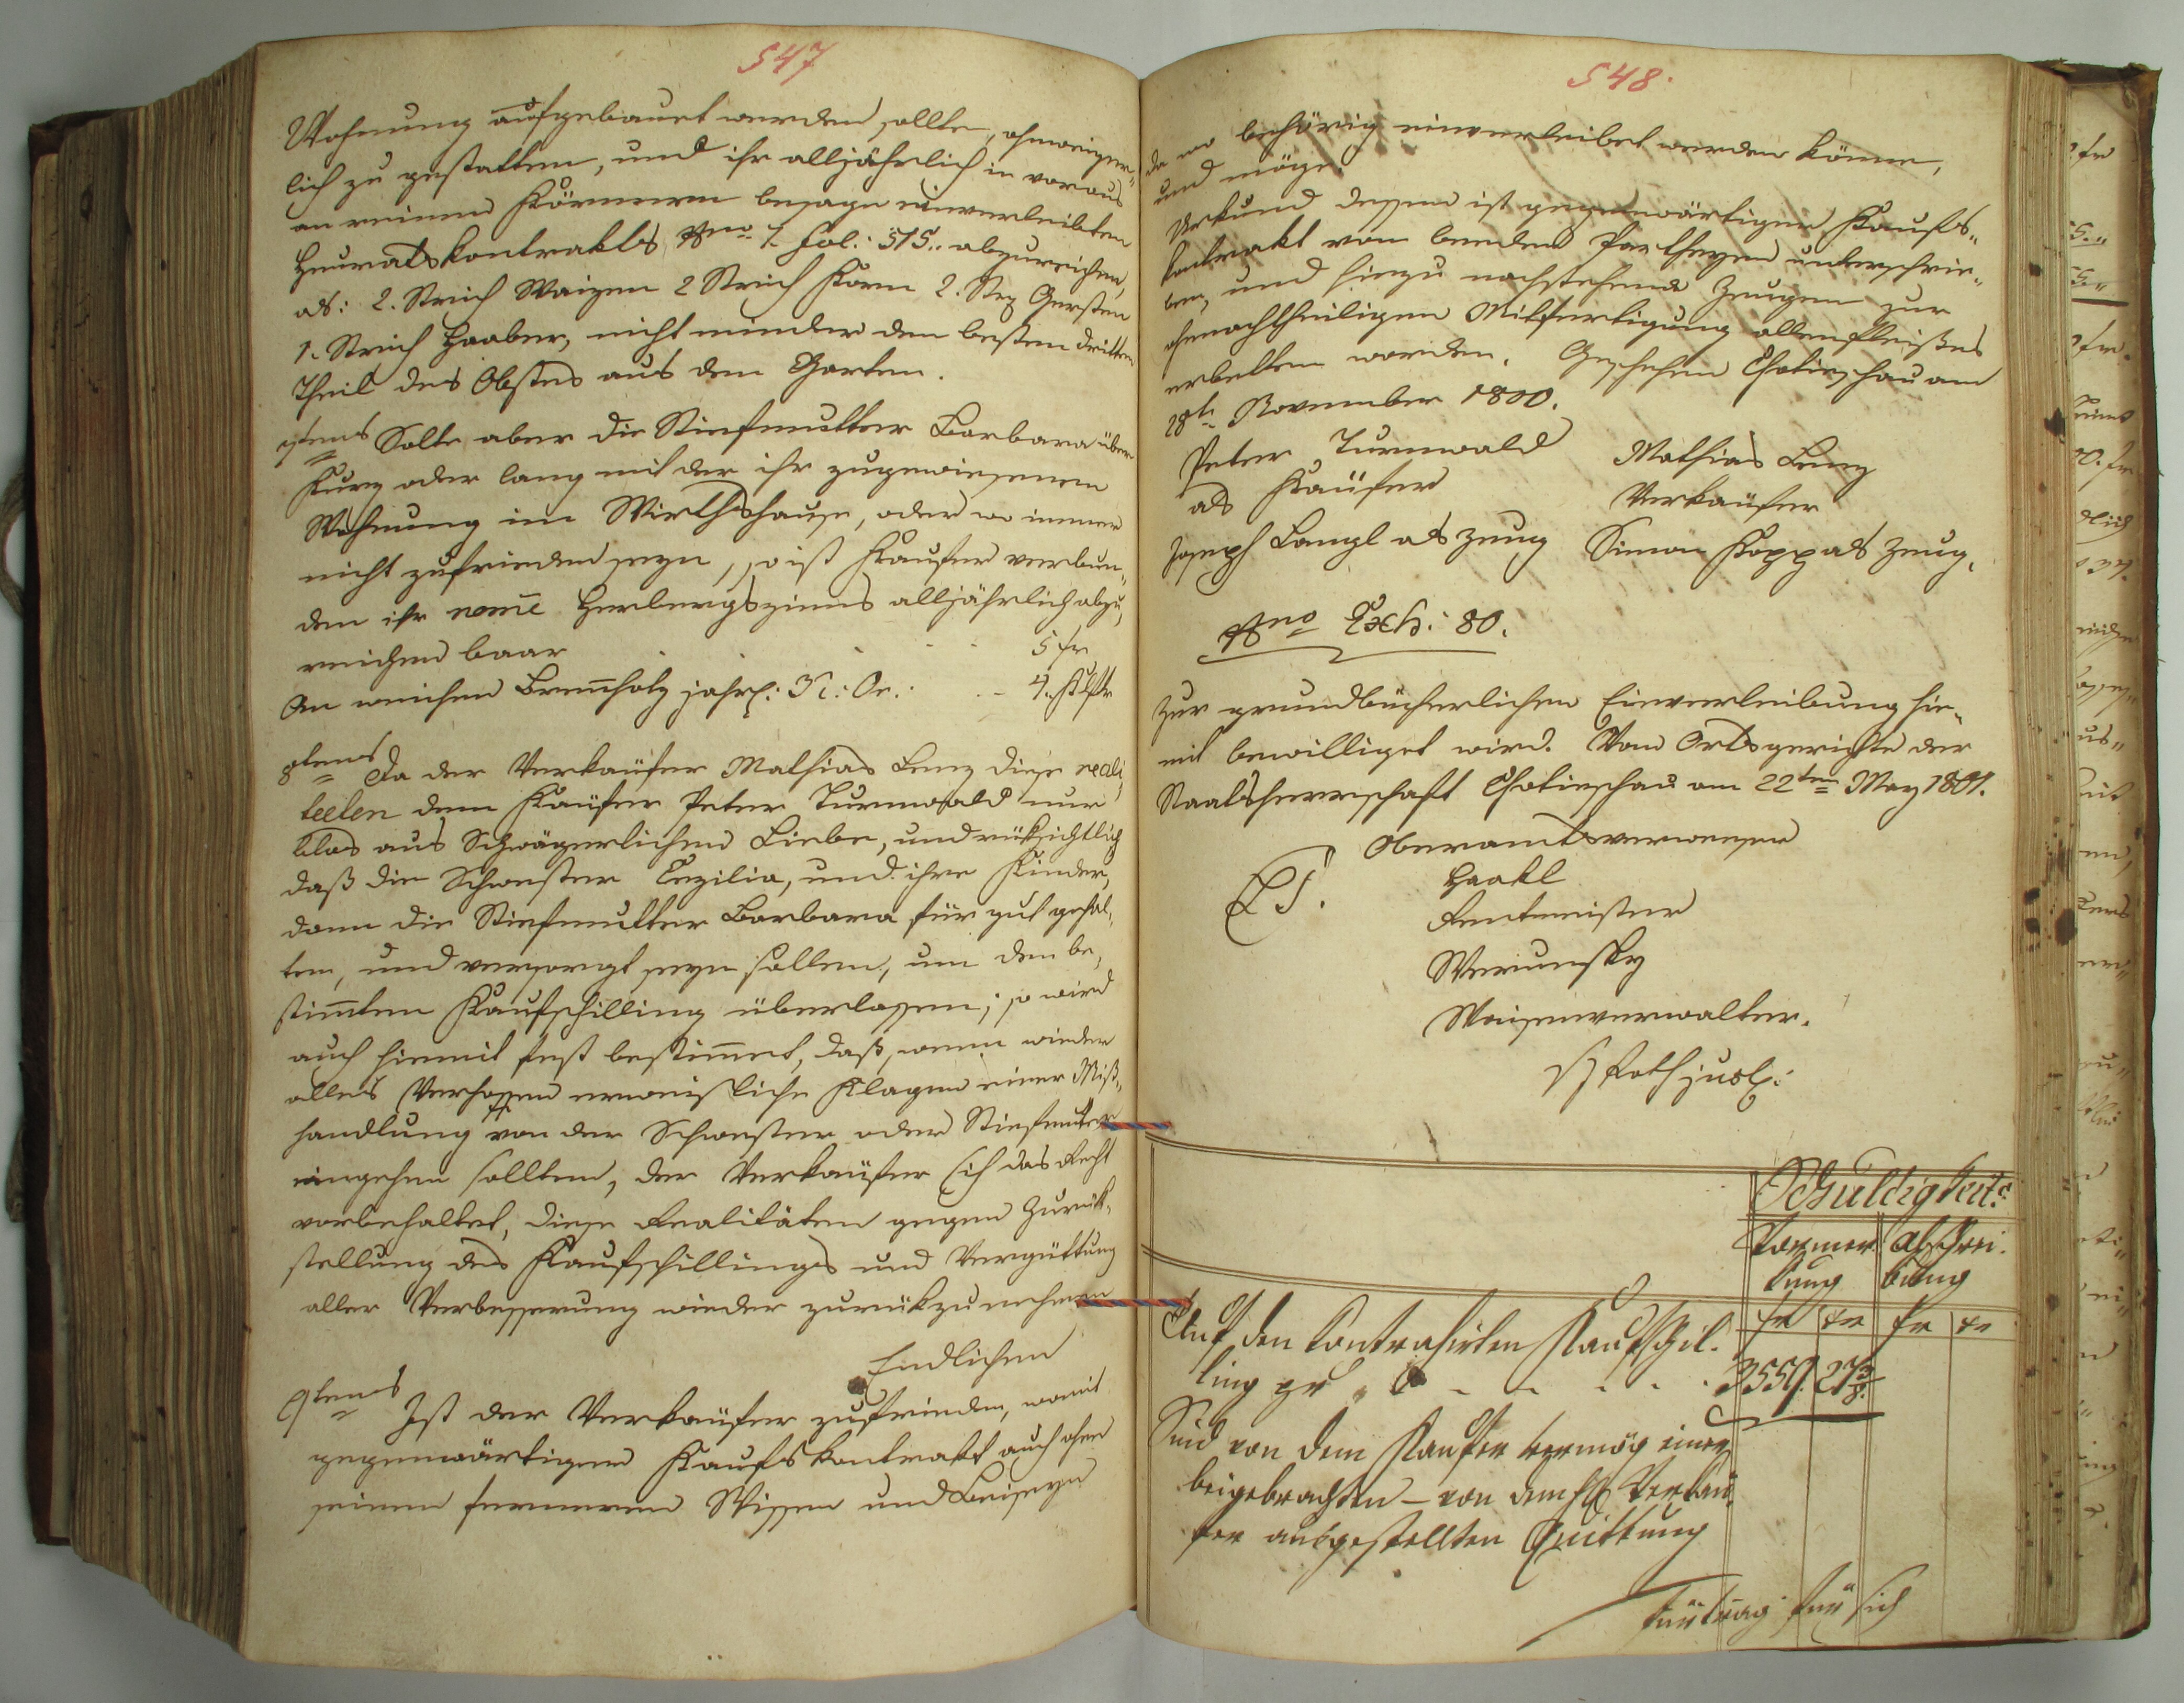 547
Wohnung aufgebauet werden sollte, ohnweiger„
lich zu gestatten, und ihr alljährlich in voraus
an reinen Körnern besage einverleibten
Heuratskontrakts Nro 1. Fol: 515. abzureichen,
als: 2. Strich Waizen 2 Strich Korn 2. Str Gersten
1. Strich Haaber, nicht minder den besten dritten
Theil des Obstes aus dem Garten.
7tens Solte aber die Stiefmutter Barbara über
Kurz oder lang mit der ihr zugewiesenen
Wohnung im Wirthshause, oder wo immer
nicht zufrieden seyn, so ist Kaufer verbun„
den ihr nomē Herbergszinns alljährlich abzu„
reichen baar 5 fr
An weichen Brennholz jährl: N: Oe: 4. Klftr
8tens Da der Verkaüfer Mathias Lenz diese reali„
teeten dem Kaüfer Peter Turnwald nur
blos aus Schwägerlichen Liebe, und rüksichtlich
daß die Schwester Cezilia, und ihre Kinder,
dann die Stiefmutter Barbara für gut gehal„
ten, und versorgt seyn sollen, um den be„
stimten Kaufschilling überlassen; so wird
auch hiemit fest bestimmet, daß, wenn wieder
alles Verhoffen erweisliche Klagen einer Miß„
handlung von der Schwester oder Stiefmutter
eingehen sollten, der Verkaüfer sich das Recht
vorbehaltet, diese Realitäten gegen Zurük„
stellung des Kaufschillings und Vergüttung
aller Verbesserung wieder zurükzunehmen
Endlichen
9tens Ist der Verkaüfer zufrieden, womit
gegenwärtiger Kaufskontrakt auch ohne
seinem ferneren Wissen und Beiseyn
548.
da wo behörig einverleibet werden könne,
und möge.
Urkund dessen ist gegenwärtiger Kaufs„
kontrakt von beeden Partheyen unterschrie„
ben, und hiezu nachstehende Zeugen zur
ohnnachtheiligen Mitfertigung allenfleißes
erbetten worden. Geschehen Chotieschau am
28te November 1800.
Peter Turnwald Mathias Lenz
als Kaüfer Verkaüfer
Joseph Langl als Zeug Simon Kopp als Zeug.
Nro Exh: 80.
Zur grundbücherlichen Einverleibung hie„
mit bewilliget wird. Vom Ortsgerichte der
Staatsherrschaft Chotieschau am 22ten May 1801.
Oberamtsverweser
LS. Haakl
Rentmeister
Werunsky
Waisenverwalter.
Roth
Schuldigkeits
Vormer„ Abschrei„
kung bung
fr xr fr xr
Auf den Contrahirten Kaufschil„
ling per 3559. 27 3/8.
Sind von dem Kaufer vermög einer
beigebrachten – von dem Verkau„
fer ausgestellten Quittung
Fürtrag für sich